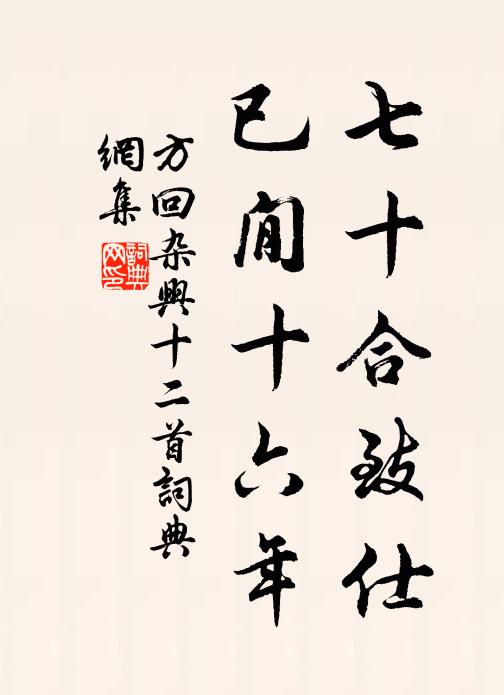 七十合致仕
已閒十六年
方回杂興十二首詞典
網集
詞典
网印